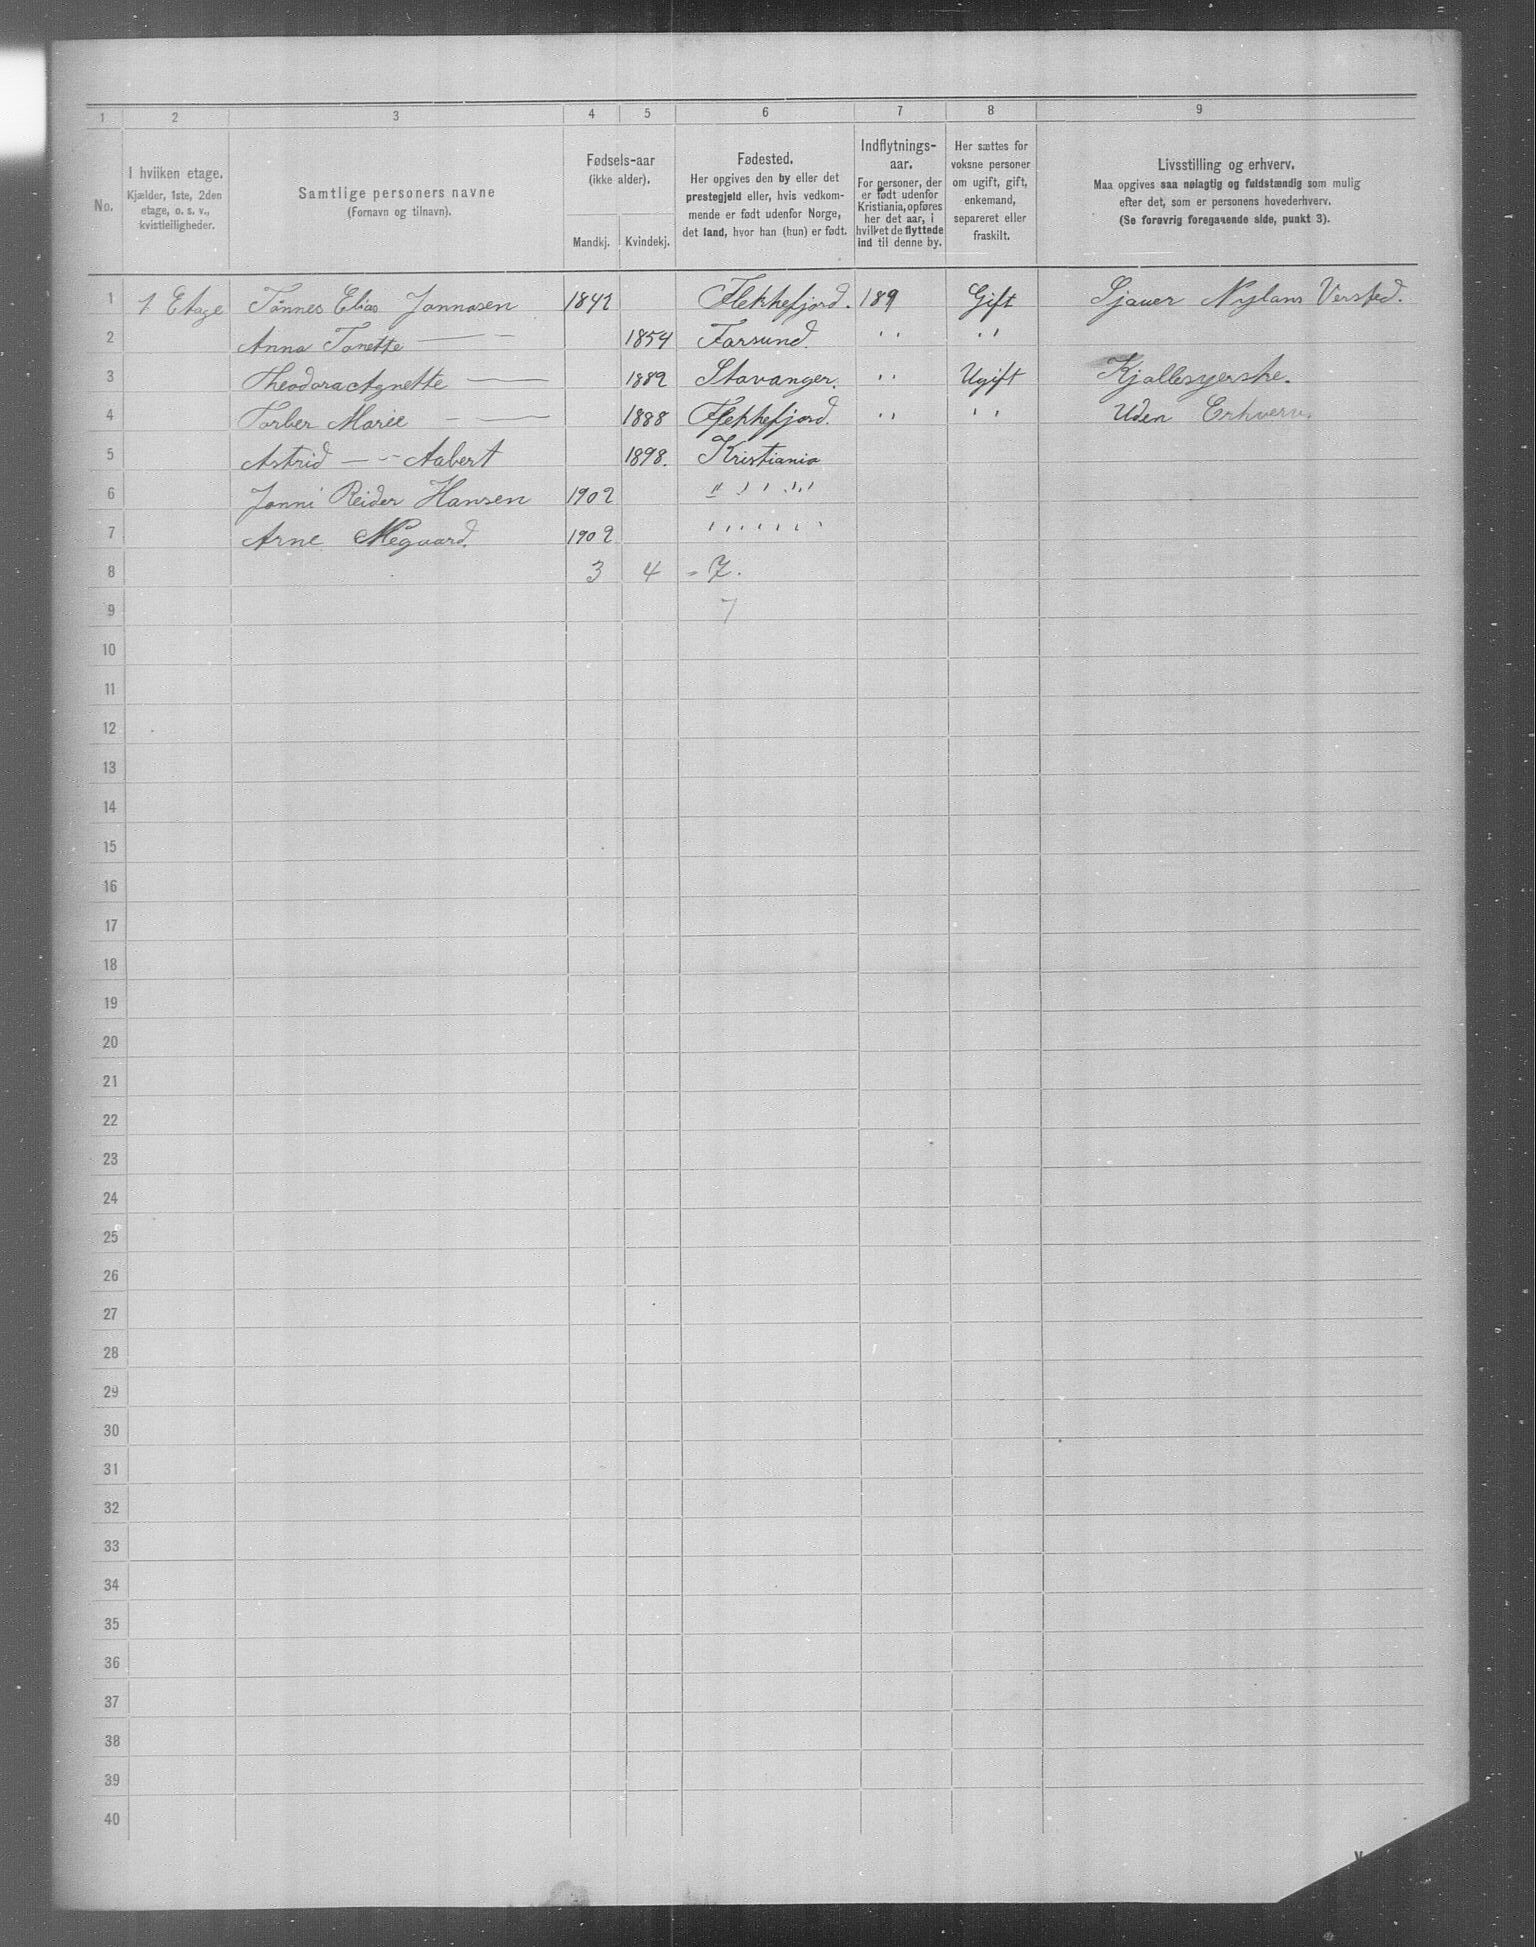 1 2 3 4 5 6 7 8 9
No.
I hvilken etage.
Kjælder, 1ste, 2den
etage, o. s. v.,
kvistleiligheder.
Samtlige personers navne
(Fornavn og tilnavn).
Fødsels-aar
(ikke alder).
Mandkj. Kvindekj.
Fødested.
Her opgives den by eller det
prestegjeld eller, hvis vedkom-
mende er født udenfor Norge,
det land, hvor han (hun) er født.
Indflytnings-
aar.
For personer, der
er født udenfor
Kristiania, opføres
her det aar, i
hvilket de flyttede
ind til denne by.
Her sættes for
voksne personer
om ugift, gift,
enkemand,
separeret eller
fraskilt.
Livsstilling og erhverv.
Maa opgives saa nøiagtig og fuldstændig som mulig
efter det, som er personens hovederhverv.
(Se forøvrig foregaaende side, punkt 3).
1 1 Etage Tønnes Elias Jonnasen 1842 Flekkefjord. 189 Gift Sjauer Nylans Versted.
2 Anna Tonette — 1854 Farsund. " "
3 Theodora Agnette — 1882 Stavanger. " Ugift Kjollesyerske.
4 Torber Marie — 1888 Flekkefjord. " " Uden Erhverv.
5 Astrid — " — Aabert 1898. Kristiania
6 Jonni Reider Hansen 1902 " " " "
7 Arne Megaard. 1902 " " " " " "
8 3 4 = 7.
9 7
10
11
12
13
14
15
16
17
18
19
20
21
22
23
24
25
26
27
28
29
30
31
32
33
34
35
36
37
38
39
40